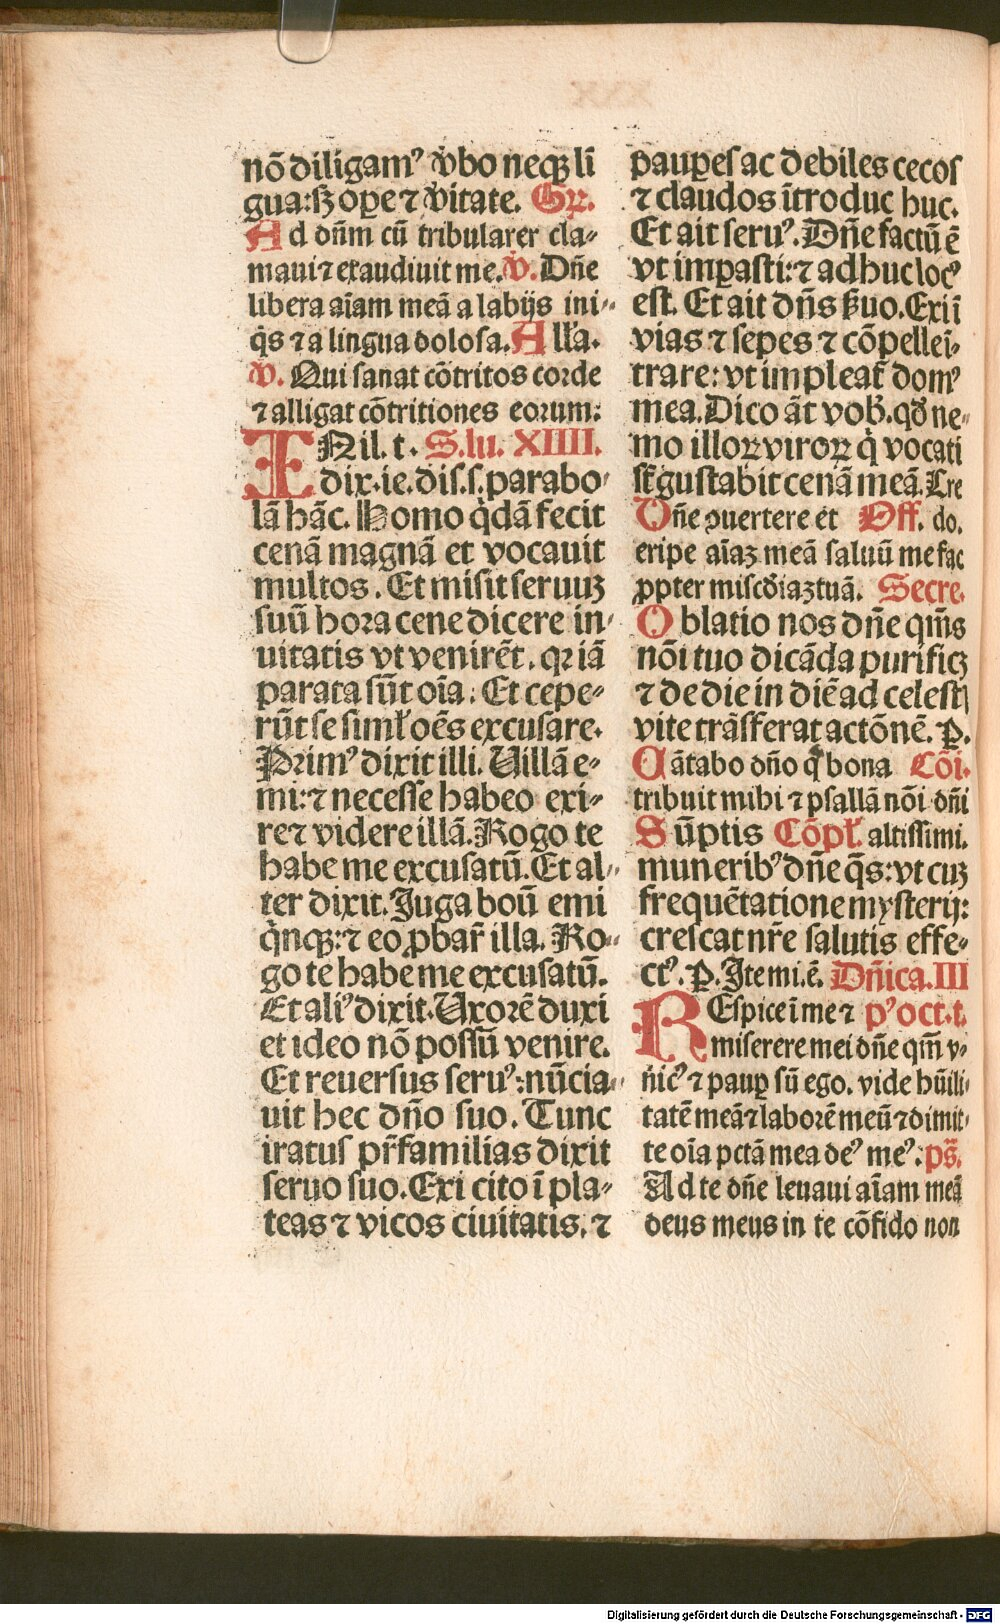 nō diligamꝰ v̄bo neqꝫ li
gua: sꝫ oꝑe ⁊ v̄itate. Gr̄.
Ad dn̄m cū tribularer cla⸗
maui ⁊ exaudiuit me. v̄. Dn̄e
libera aīam meā a labijs ini⸗
q̇s ⁊ a lingua dolosa. All'a.
v̄. Qui sanat cōtritos corde
⁊ alligat cōtritiones eorum:
IN il. t. S. lu. XIIII.
dix. ie. dis. s. parabo⸗
lā hāc. Homo q̇dā fecit
cenā magnā et vocauit
multos. Et misit seruuꝫ
suū hora cene dicere in⸗
uitatis vt venirēt. qꝛ iā
parata sūt oīa: Et cepe⸗
rūt se siml' oēs excusare.
Primꝰ dixit illi. Uillā e⸗
mi: ⁊ necesse habeo exi⸗
re ⁊ videre illā. Rogo te
habe me excusatū. Et al⸗
ter dixit. Juga boū emi
q̇nqꝫ: ⁊ eo ꝓbar̄ illa. Ro⸗
go te habe me excusatū.
Et aliꝰ dixit. Uxorē duxi
et ideo nō possū venire.
Et reuersus seruꝰ: nūcia⸗
uit hec dn̄o suo. Tunc
iratus pr̄familias dixit
seruo suo. Exi cito ī pla⸗
teas ⁊ vicos ciuitatis. ⁊
pauꝑes ac debiles cecos
⁊ claudos ītroduc huc.
Et ait seruꝰ. Dn̄e factū ē
vt imꝑasti: ⁊ adhuc locꝰ
est. Et ait dn̄s ẜuo. Exi ī
vias ⁊ sepes ⁊ cōpelle ī⸗
trare: vt impleat̄ domꝰ
mea. Dico āt vob̄. qđ ne⸗
mo illoꝝ viroꝝ q̇ vocati
sūt gustabit cenā meā. Cre
Dn̄e ꝯuertere et Off. do.
eripe aīaꝫ meā saluū me fac
ꝓpter misc̄diaꝫ tuā. Secre.
Oblatio nos dn̄e qm̄s
nōi tuo dicāda purificꝫ
⁊ de die in diē ad celestꝭ
vite trāsferat actōnē. P.
Cātabo dn̄o q̇ bona Cōi.
tribuit mihi ⁊ psallā nōi dn̄i
Sūptis Cōpl'. altissimi.
muneribꝰ dn̄e q̄s: vt cuꝫ
frequētatione mysterij:
crescat nr̄e salutis effe⸗
ctꝰ. P. Ite mi. ē. Dn̄ica. III
REspice ī me ⁊ pꝰ oct. t.
miserere mei dn̄e qm̄ v⸗
nicꝰ ⁊ pauꝑ sū ego. vide hūili⸗
tatē meā ⁊ laborē meū ⁊ dimit⸗
te oīa pctā mea deꝰ meꝰ. ps̄.
Ad te dn̄e leuaui aīam meā
deus meus in te cōfido non
Digitalisierung gefördert durch die Deutsche Forschungsgemeinschaft - DFG